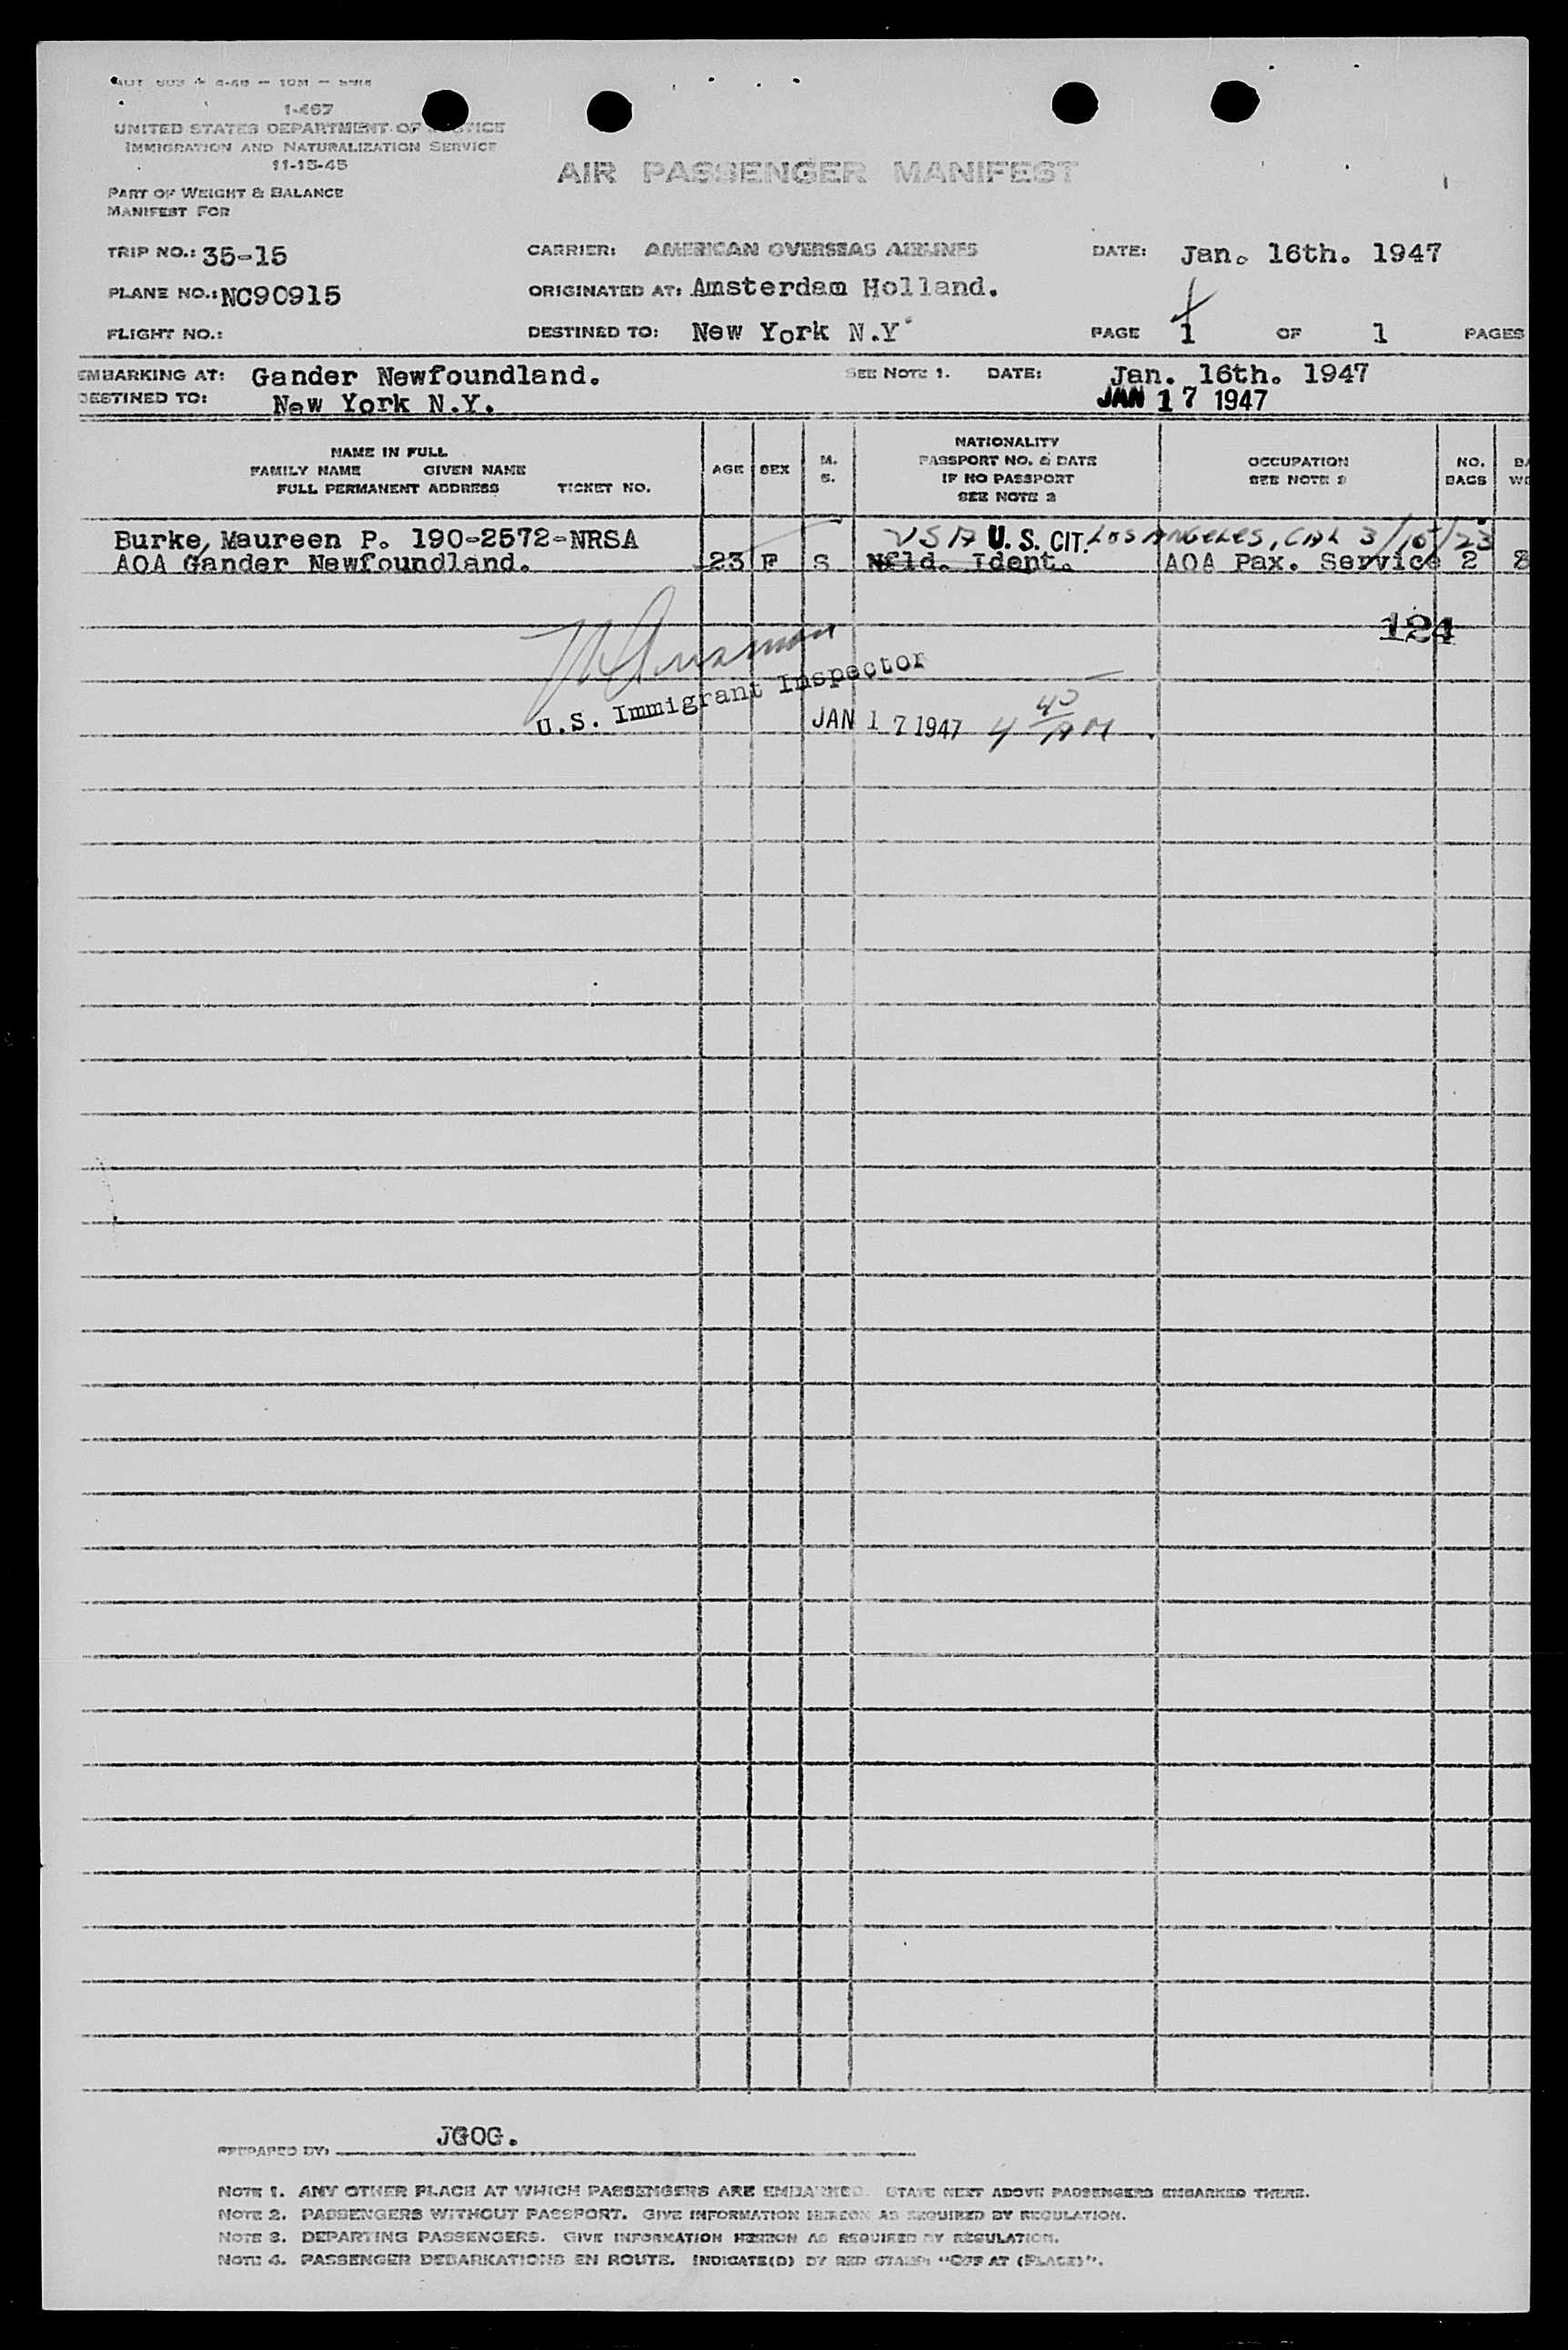 1-467
UNITED STATES DEPARTMENT OF JUSTICE
IMMIGRATION AND NATURALIZATION SERVICE
11-15-45
AIR PASSENGER MANIFEST
PART OF WEIGHT & BALANCE
MANIFEST FOR
TRIP NO.: 35-15 CARRIER: AMERICAN OVERSEAS AIRLINES DATE: Jan. 16th. 1947
PLANE NO.: NC90915 ORIGINATED AT: Amsterdam Holland.
FLIGHT NO.: DESTINED TO: New York N.Y. PAGE 1 OF 1 PAGES
EMBARKING AT: Gander Newfoundland. SEE NOTE 1. DATE: Jan. 16th. 1947
DESTINED TO: New York N.Y. JAN 17 1947
NAME IN FULL
FAMILY NAME GIVEN NAME
FULL PERMANENT ADDRESS TICKET NO.
AGE SEX M. S.
NATIONALITY
PASSPORT NO. & DATE
IF NO PASSPORT
SEE NOTE 2
OCCUPATION
SEE NOTE 3
NO.
BAGS
Burke, Maureen P. 190-2572-NRSA USA U.S. CIT. LOS ANGELES, CAL 3/15/23
AOA Gander Newfoundland. 23 F S Nfld. Ident. AOA Pax. Service 2
124
U.S. Immigrant Inspector
JAN 17 1947 4 40 AM
PREPARED BY: JGOG.
NOTE 1. ANY OTHER PLACE AT WHICH PASSENGERS ARE EMBARKED. STATE NEXT ABOVE PASSENGERS EMBARKED THERE.
NOTE 2. PASSENGERS WITHOUT PASSPORT. GIVE INFORMATION HEREON AS REQUIRED BY REGULATION.
NOTE 3. DEPARTING PASSENGERS. GIVE INFORMATION HEREON AS REQUIRED BY REGULATION.
NOTE 4. PASSENGER DEBARKATIONS EN ROUTE. INDICATE(D) BY RED STAMP: "OFF AT (PLACE)".